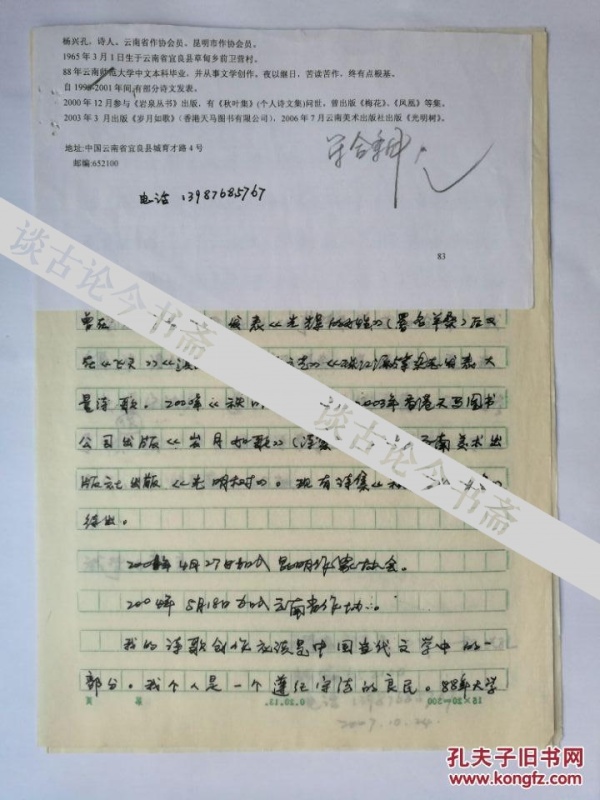 杨兴孔,诗人、云南省作协会员、昆明市作协会员。
1965年3月1日生于云南省宜良县草甸乡前卫营村。
88年云南师范大学中文本科毕业,并从事文学创作,夜以继日,苦读苦作,终有点根基。
自1998-2001年间,有部分诗文发表。
2000年12月参与《岩泉丛书》出版,有《秋叶集》(个人诗文集)问世,曾出版《梅花》、《凤凰》等集。
2003年3月出版《岁月如歌》(香港天马图书有限公司),2006年7月云南美术出版社出版《光明树》。
地址:中国云南省宜良县城育才路4号
邮编:652100
电话:13987685767
83
发表《光
表大
量诗歌。2000年《秋 2003年香港天马图书
公司出版《岁月如歌》 云南美术出
版社出版《光明树》。现有诗集
结出。
年4月27日加入昆明作家协会。
2004年5月18日加入云南省作协。
我的诗歌创作应该是中国当代文学中的一
部分。我个人是一个遵纪守法的良民。88年大学
15×20=300
谈古论今书斋
谈古论今书斋
谈古论今书斋
孔夫子旧书网
www.kongfz.com